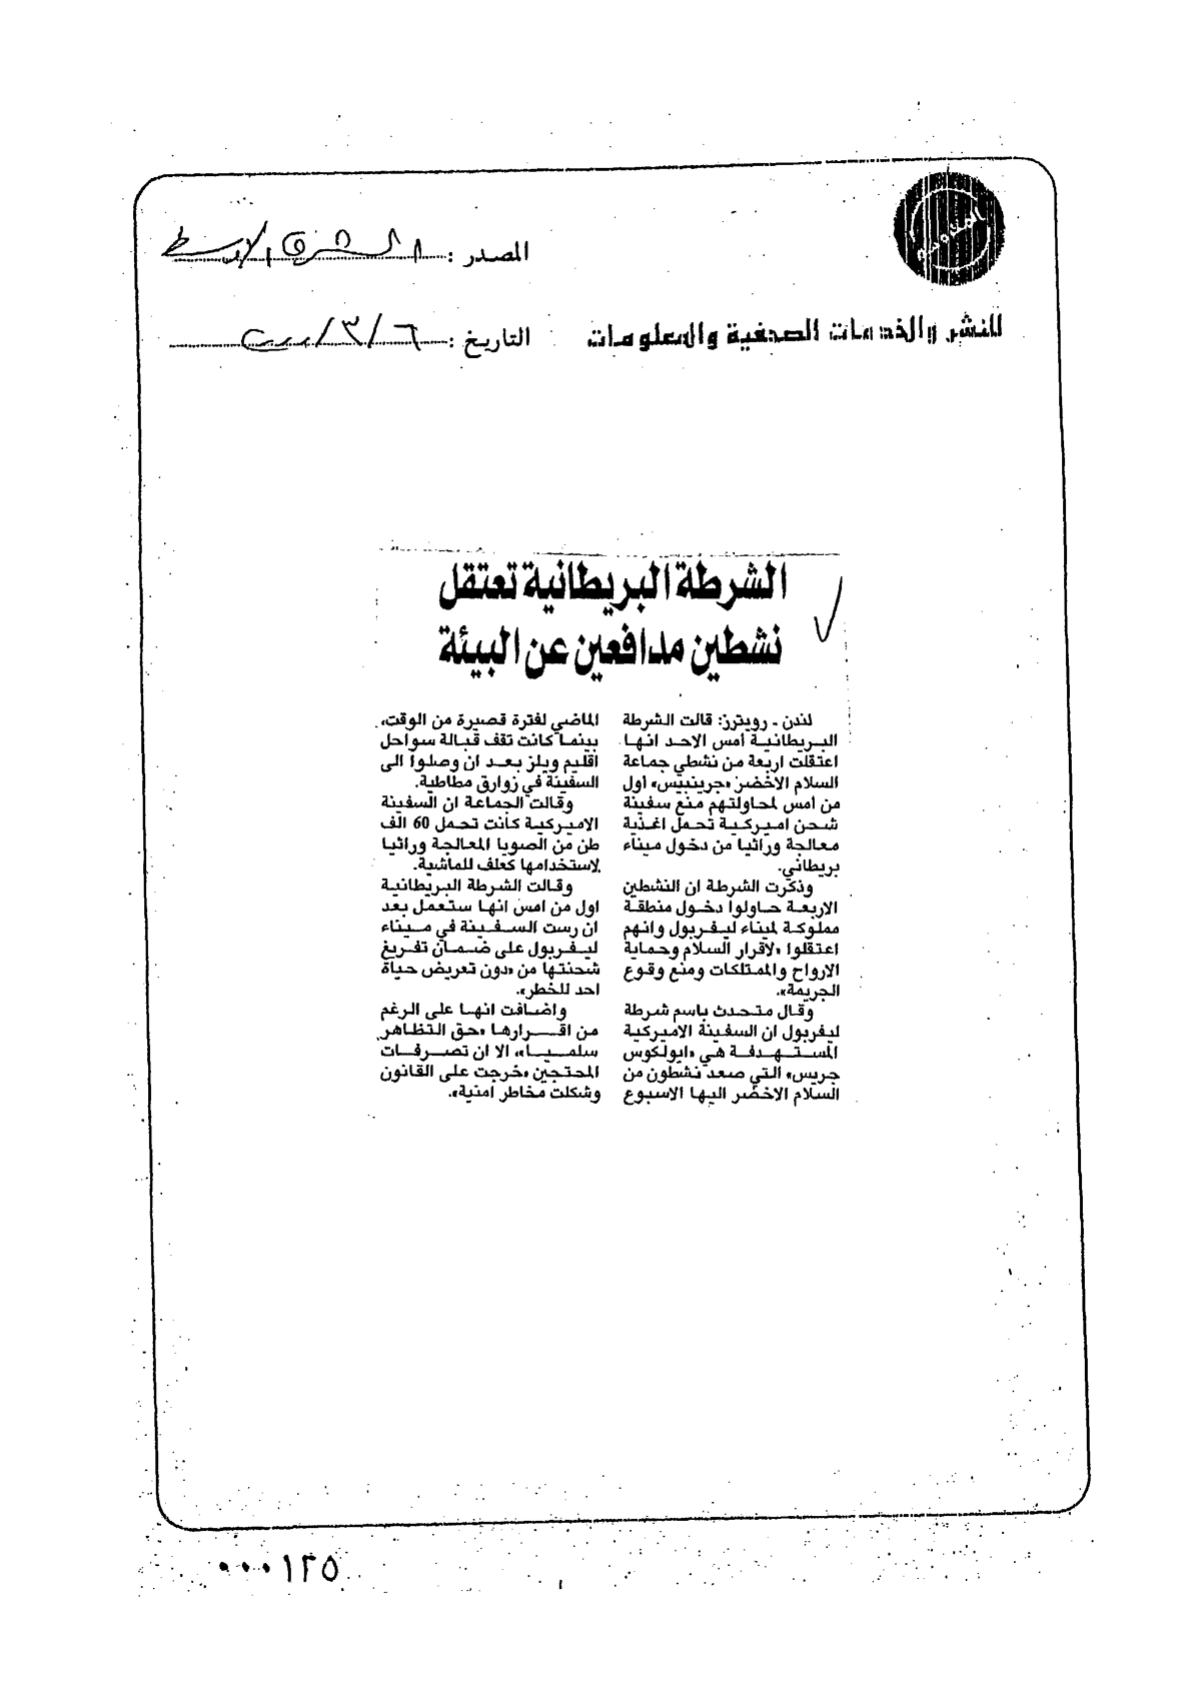 المصدر : الشرق الاوسط
للنشر والخدمات الصحفية والمعلومات
التاريخ : ٦/٣/
الشرطة البريطانية تعتقل
نشطين مدافعين عن البيئة
لندن - رويترز: قالت الشرطة
البريطانية أمس الاحد انها
اعتقلت اربعة من نشطي جماعة
السلام الاخضر «جرينبيس» أول
من أمس لمحاولتهم منع سفينة
شحن اميركية تحمل اغذية
معالجة وراثيا من دخول ميناء
بريطاني.
وذكرت الشرطة ان النشطين
الاربعة حاولوا دخول منطقة
مملوكة لميناء ليفربول وانهم
اعتقلوا «لاقرار السلام وحماية
الارواح والممتلكات ومنع وقوع
الجريمة».
وقال متحدث باسم شرطة
ليفربول ان السفينة الاميركية
المستهدفة هي «ايولكوس
جريس» التي صعد نشطون من
السلام الاخضر اليها الاسبوع
الماضي لفترة قصيرة من الوقت،
بينما كانت تقف قبالة سواحل
اقليم ويلز بعد ان وصلوا الى
السفينة في زوارق مطاطية.
وقالت الجماعة ان السفينة
الاميركية كانت تحمل 60 الف
طن من الصويا المعالجة وراثيا
لاستخدامها كعلف للماشية.
وقالت الشرطة البريطانية
اول من امس انها ستعمل بعد
ان رست السفينة في ميناء
ليفربول على ضمان تفريغ
شحنتها من «دون تعريض حياة
احد للخطر».
واضافت انها على الرغم
من اقرارها «حق التظاهر
سلميا»، الا ان تصرفات
المحتجين «خرجت على القانون
وشكلت مخاطر امنية».
٠٠٠١٢٥